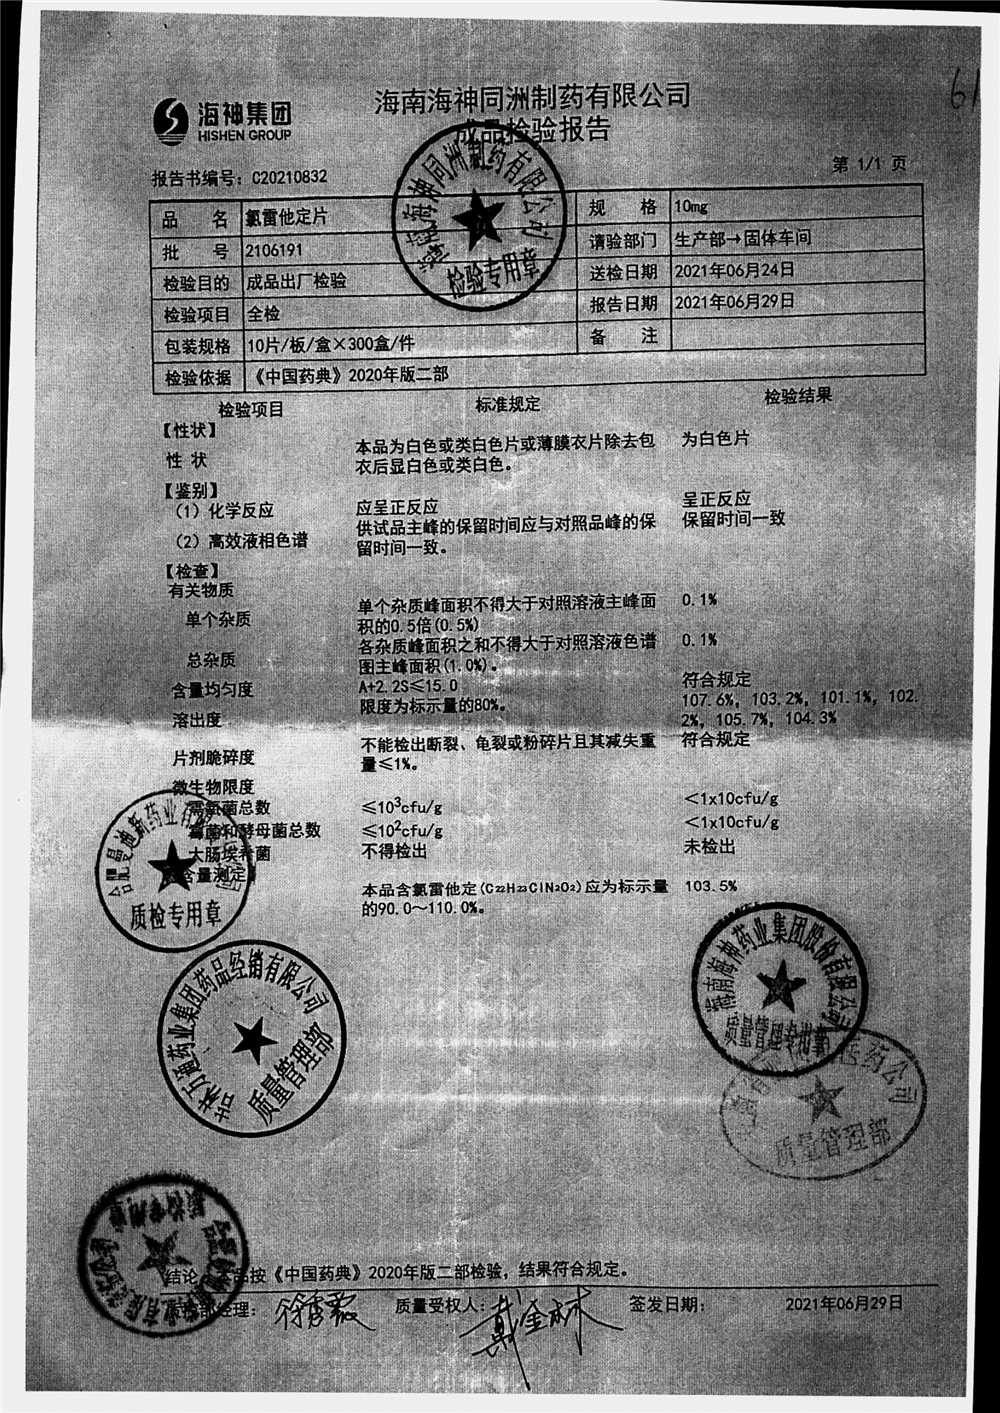 61
海神集团
HISHEN GROUP
海南海神同洲制药有限公司
成品检验报告
报告书编号：C20210832
第 1/1 页
品 名 氯雷他定片 规 格 10mg
批 号 2106191 请验部门 生产部→固体车间
检验目的 成品出厂检验 送检日期 2021年06月24日
检验项目 全检 报告日期 2021年06月29日
包装规格 10片/板/盒×300盒/件 备 注
检验依据 《中国药典》2020年版二部
检验项目 标准规定 检验结果
【性状】
性 状 本品为白色或类白色片或薄膜衣片除去包 为白色片
衣后显白色或类白色。
【鉴别】
（1）化学反应 应呈正反应 呈正反应
（2）高效液相色谱 供试品主峰的保留时间应与对照品峰的保 保留时间一致
留时间一致。
【检查】
有关物质
单个杂质 单个杂质峰面积不得大于对照溶液主峰面 0.1%
积的0.5倍(0.5%)
总杂质 各杂质峰面积之和不得大于对照溶液色谱 0.1%
图主峰面积(1.0%)。
含量均匀度 A+2.2S≤15.0 符合规定
溶出度 限度为标示量的80%。 107.6%, 103.2%, 101.1%, 102.
2%, 105.7%, 104.3%
片剂脆碎度 不能检出断裂、龟裂或粉碎片且其减失重 符合规定
量≤1%。
微生物限度
需氧菌总数 ≤10³cfu/g <1x10cfu/g
霉菌和酵母菌总数 ≤10²cfu/g <1x10cfu/g
大肠埃希菌 不得检出 未检出
含量测定】 本品含氯雷他定(C₂₂H₂₃ClN₂O₂)应为标示量 103.5%
的90.0～110.0%。
海南海神同洲制药有限公司
检验专用章
合肥曼迪新药业有限公司
质检专用章
吉林万通药业集团药品经销有限公司
质量管理部
海南海神药业集团股份有限公司
质量管理专用章
医药公司
质量管理部
质检专用章
结论 品按《中国药典》2020年版二部检验，结果符合规定。
经理： 质量受权人： 戴金林 签发日期： 2021年06月29日